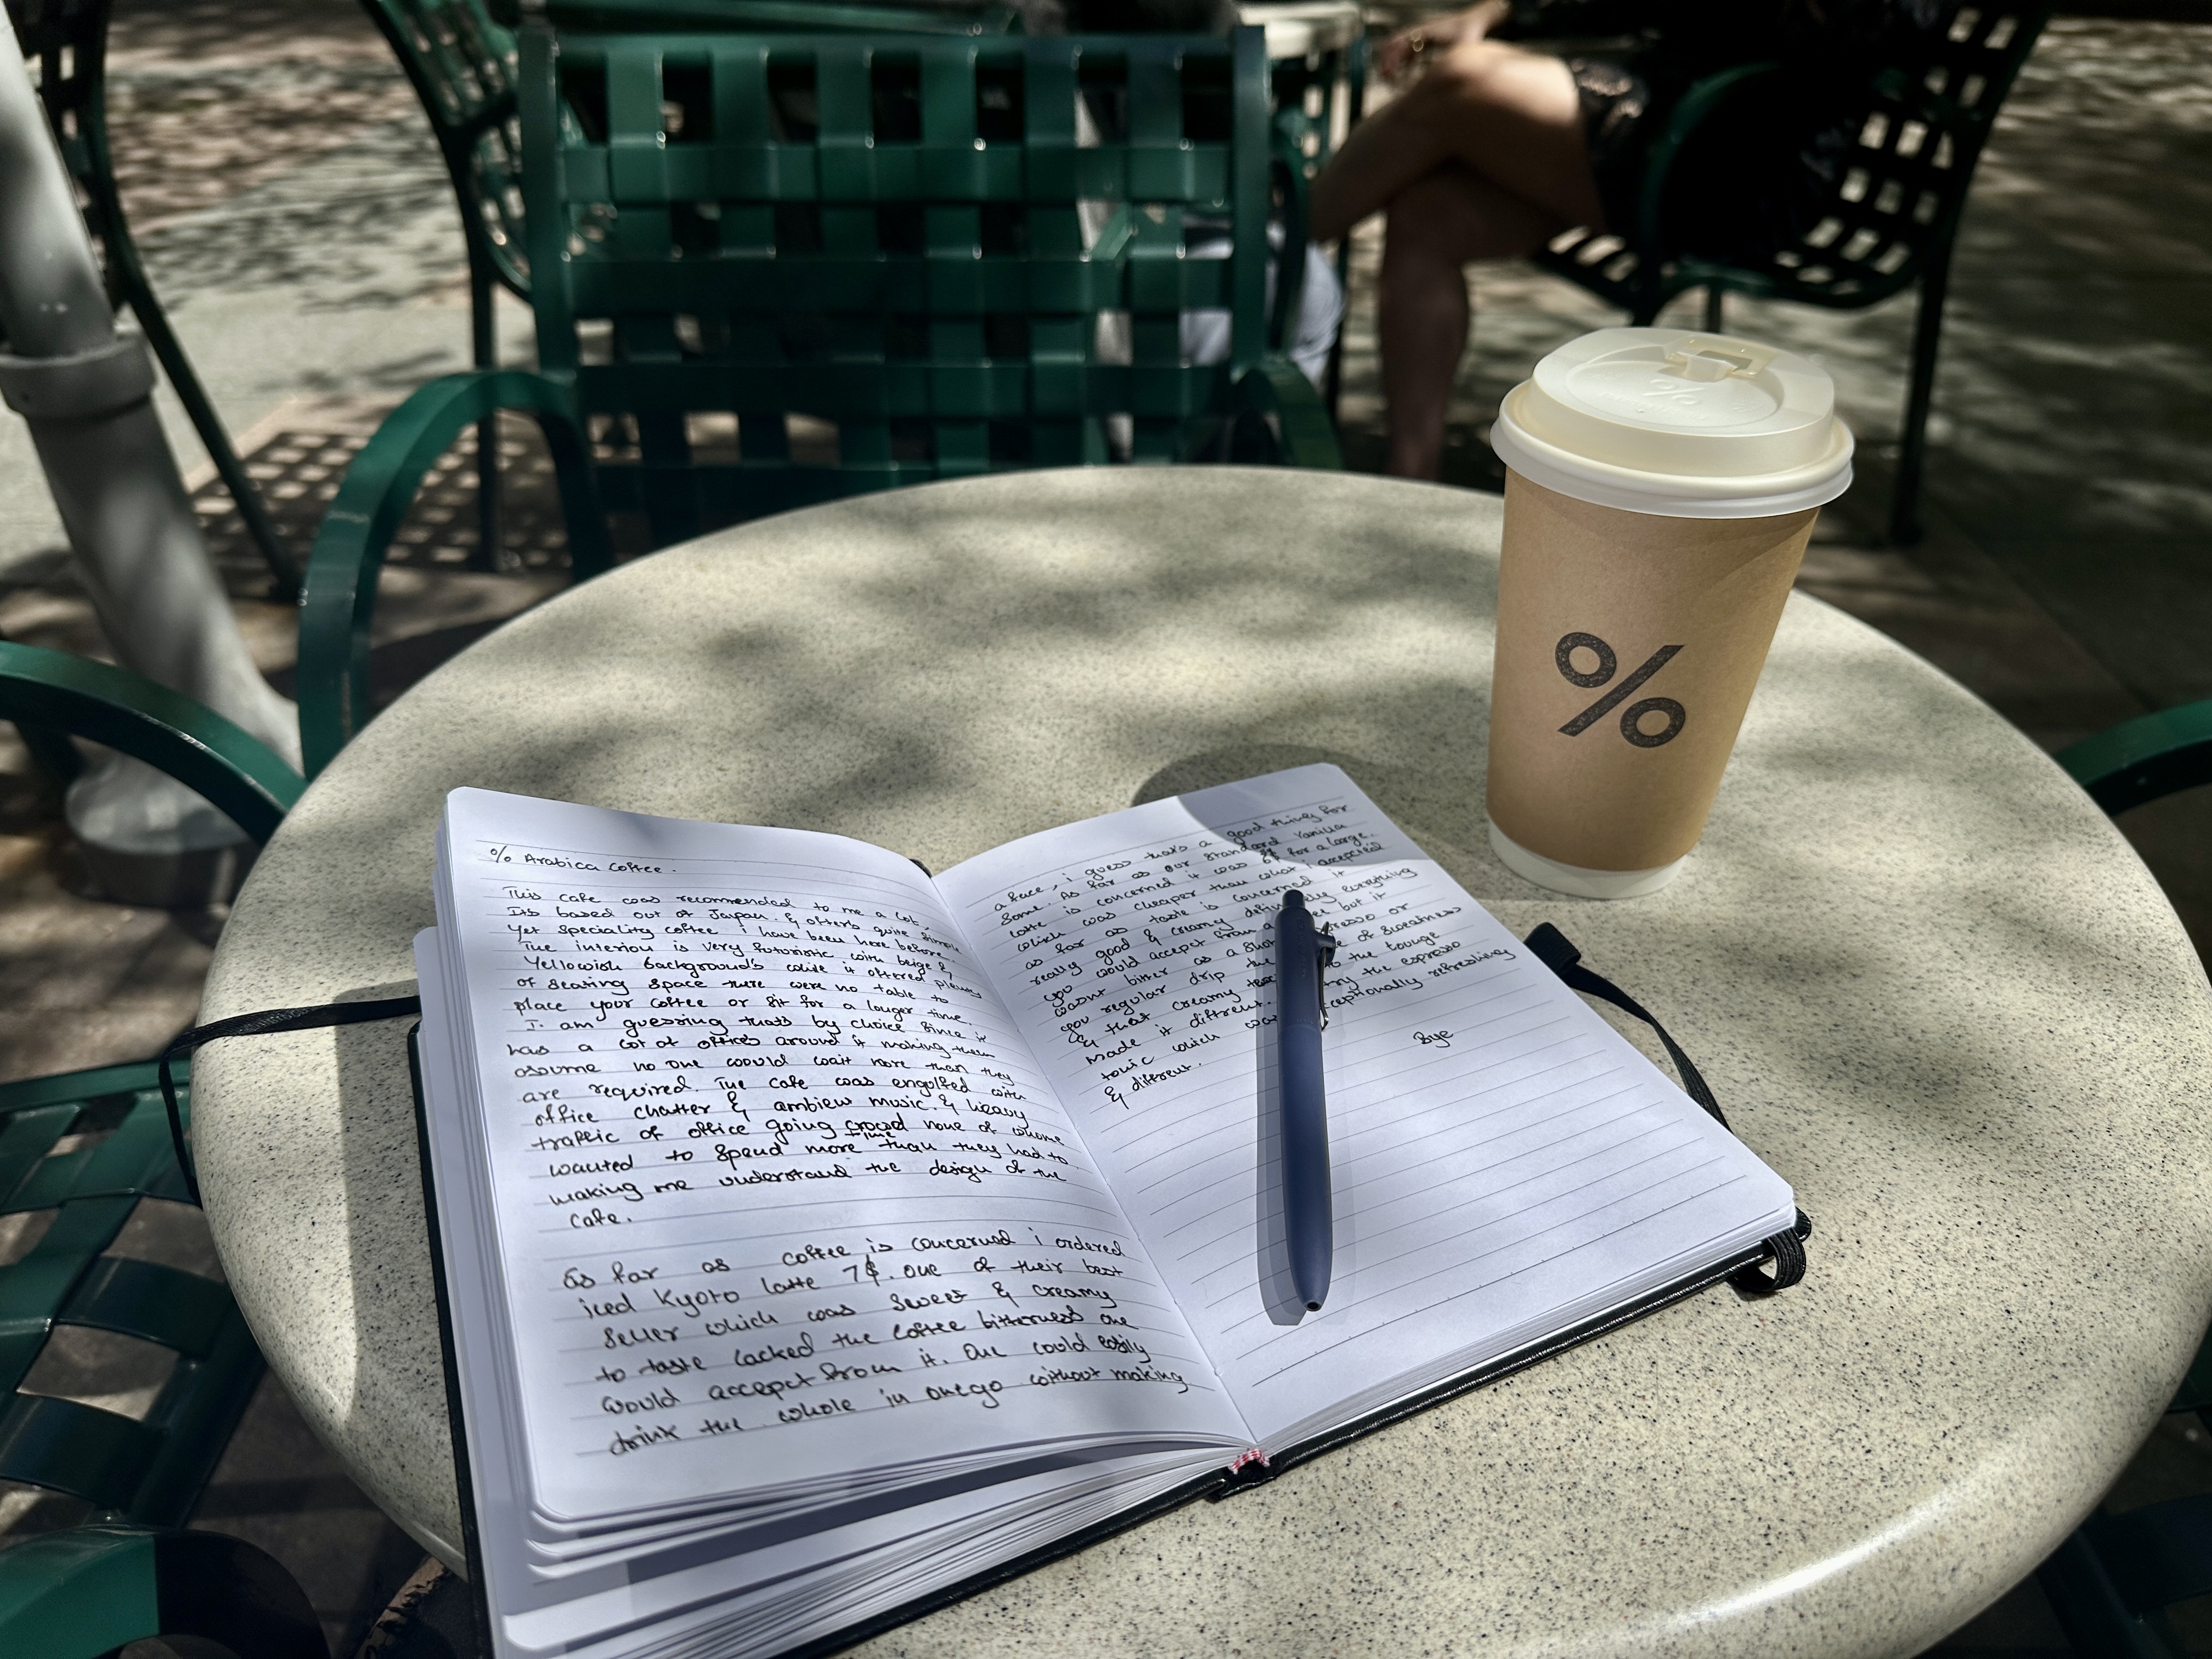 % Arabica Coffee.
This cafe was recommended to me a lot,
Its based out of Japan. & offers quite simple
yet speciality coffee i have been here before.
The interior is very futuristic with beige &
Yellowish background's while it offered plenty
of seating space there were no table to
place your coffee or sit for a longer time.
I am guessing thats by choice since it
has a lot of offices around it making them
assume no one woould wait more than they
are required. The cafe was engulfed with
office chatter & ambiew music. & heavy
traffic of office going crowd none of whome
wanted to spend more time than they had to
making me understand the design of the
Cafe.
As far as coffee is concerned i ordered
iced kyoto latte 7$. One of their best
seller which was sweet & creamy
to taste lacked the coffee bitterness one
would accepct from it. One could easily
drink the whole in onego without making
a face, i guess thats a good thing for
some. As far as our standard Vanilla
latte is concerned it was 6$ for a large.
which was cheaper than what i accepted
as far as taste is concerned it
really good & creamy definitely everything
you would accepct from a but it
wasnt bitter as a shot espresso or
you regular drip the of sweatness
& that creamy to the tounge
made it different. try the espresso
tonic which was exceptionally refreshing
& different.
Bye
%
%